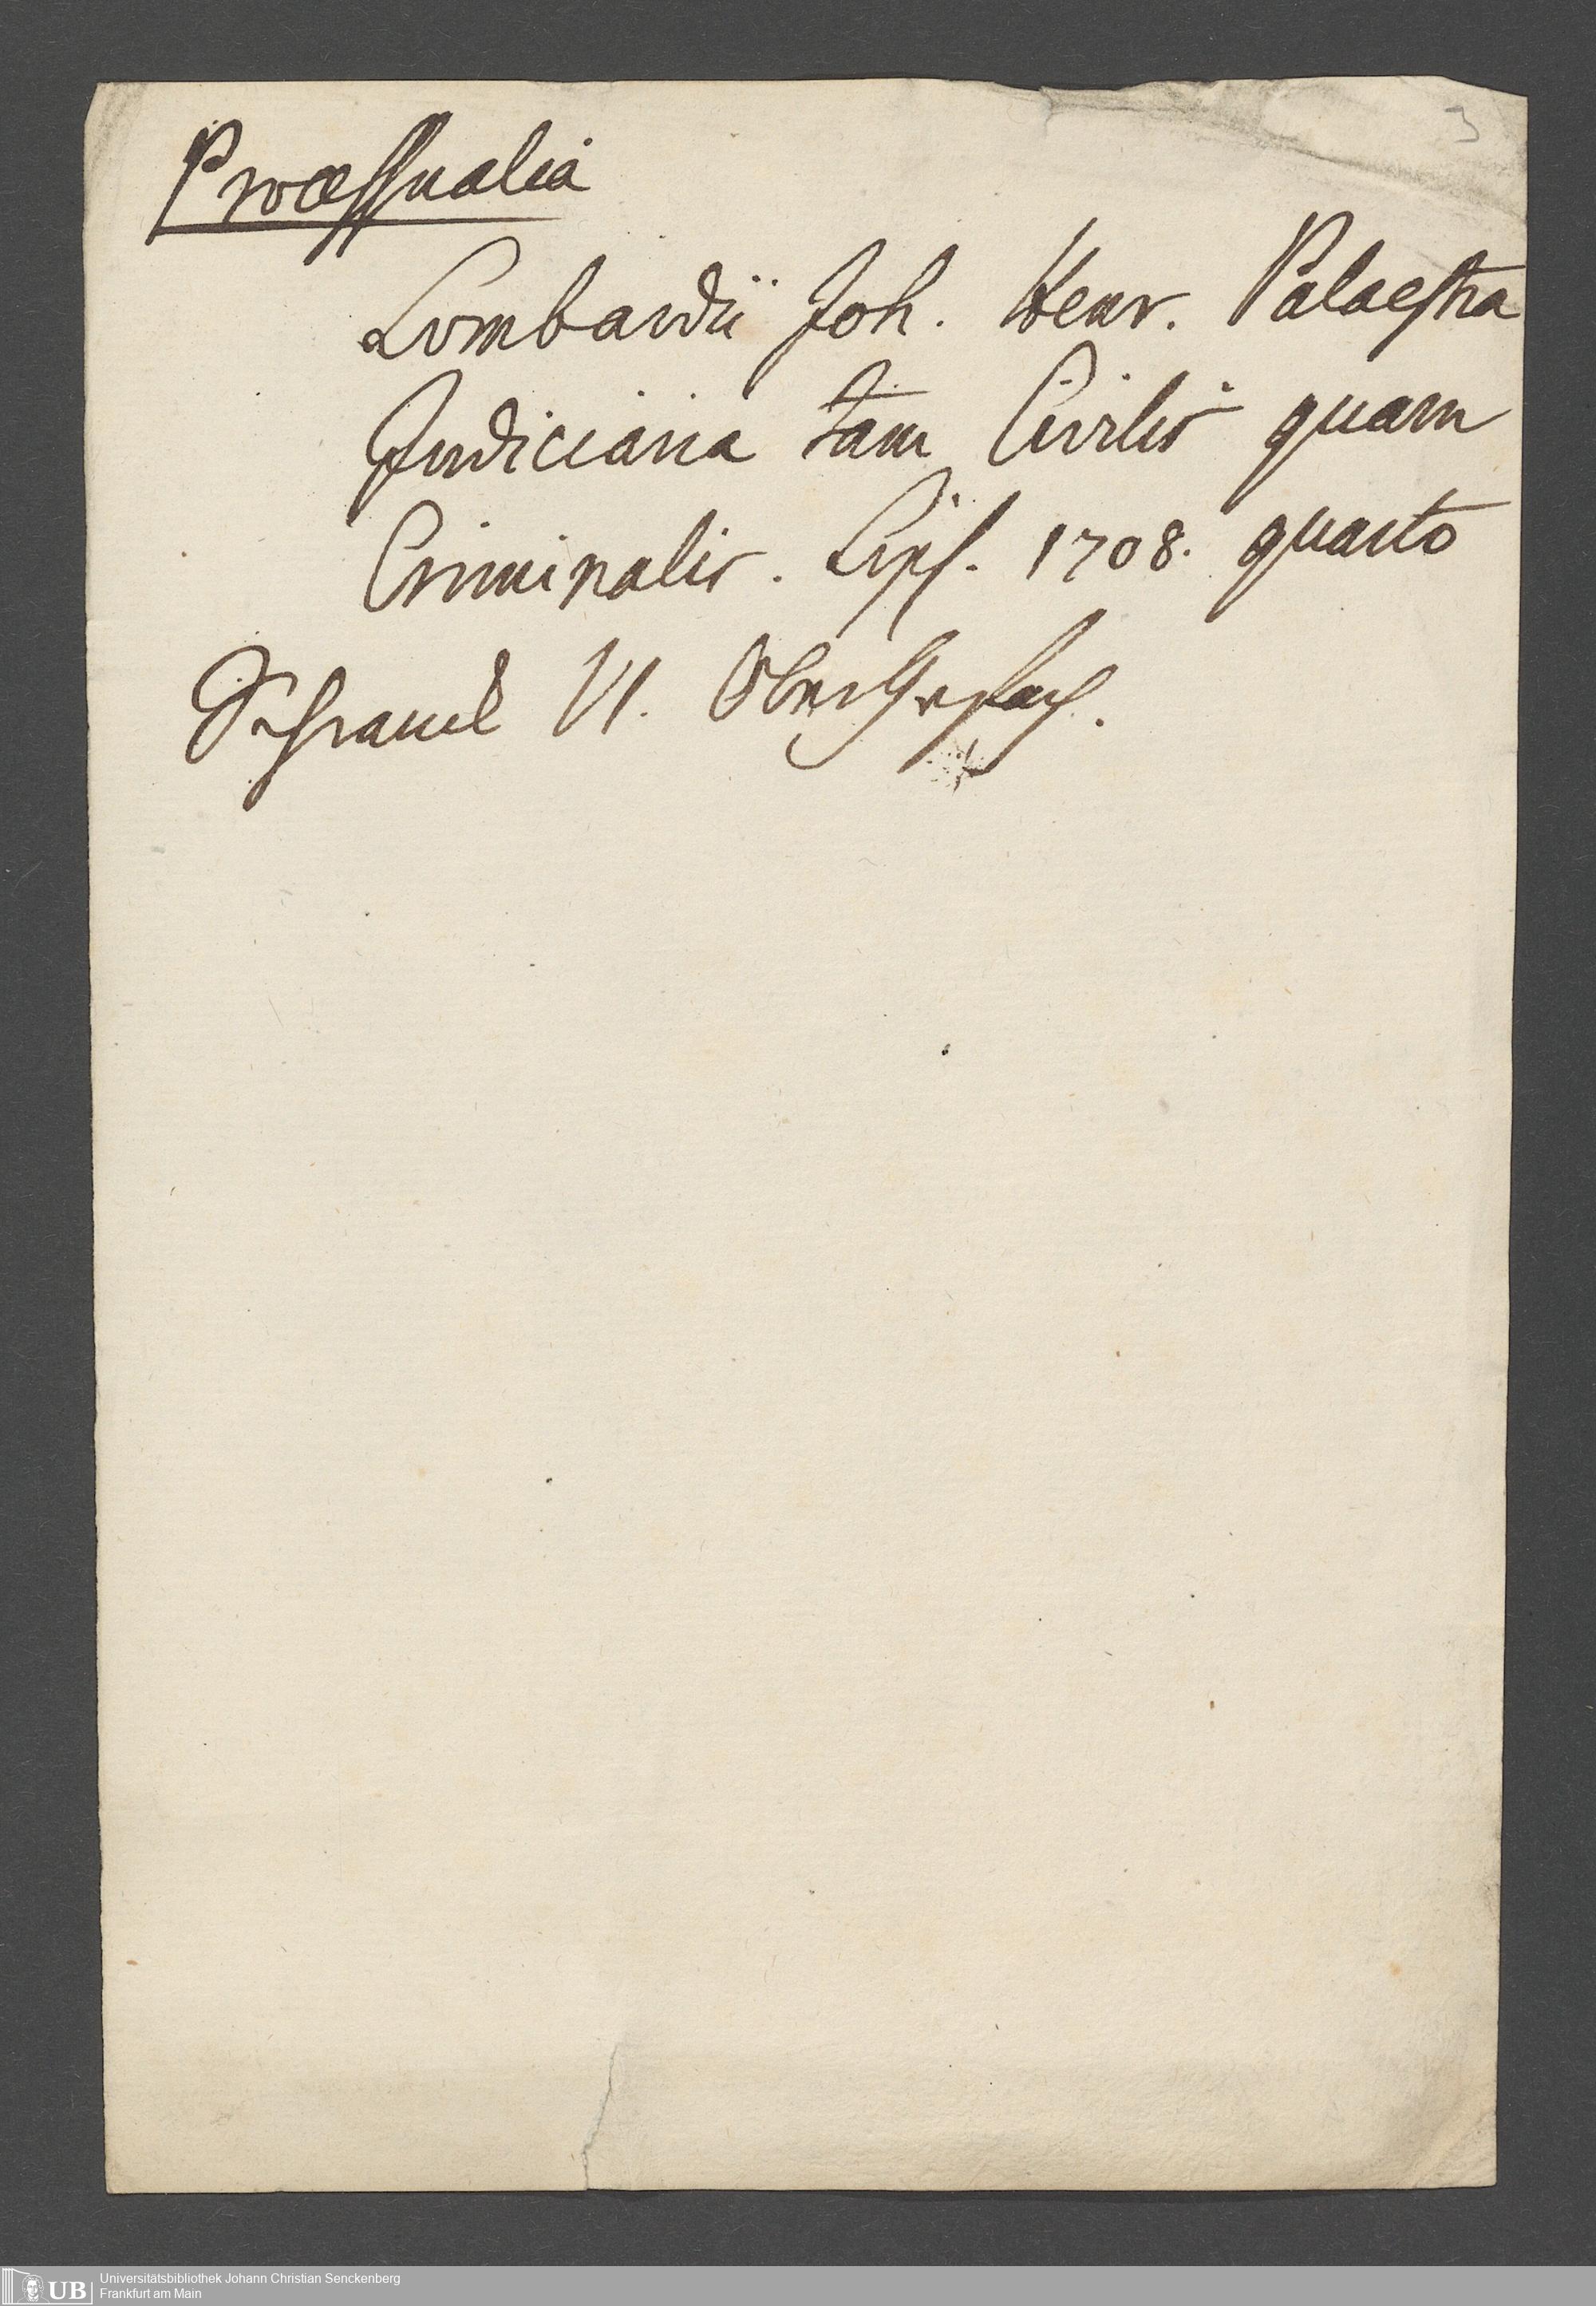 3
Processualia
Lombardii Joh. Henr. Palaestra
Judiciaria tam Civilis quam
Criminalis. Lips. 1708. quarto
Schranck VI.
UB Universitätsbibliothek Johann Christian Senckenberg
Frankfurt am Main